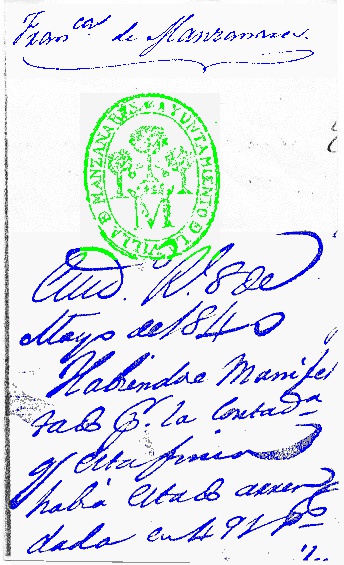 Fran.ca de Manzanares
AYUNTAMIENTO DE LA VILLA DE MANZANARES
M
Ciud. R.l 8 de
Mayo de 1840
Habiendose Manifes
tado p.r la Contad.a
q.e esta finca
habia estado arren
dada en